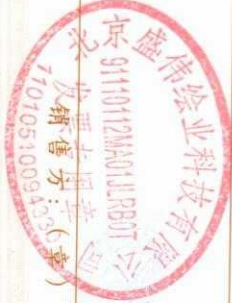 北京盛伟绘业科技有限公司
91110112MA01JLRB0T
发票专用章
销售方：(章)
1101051009433